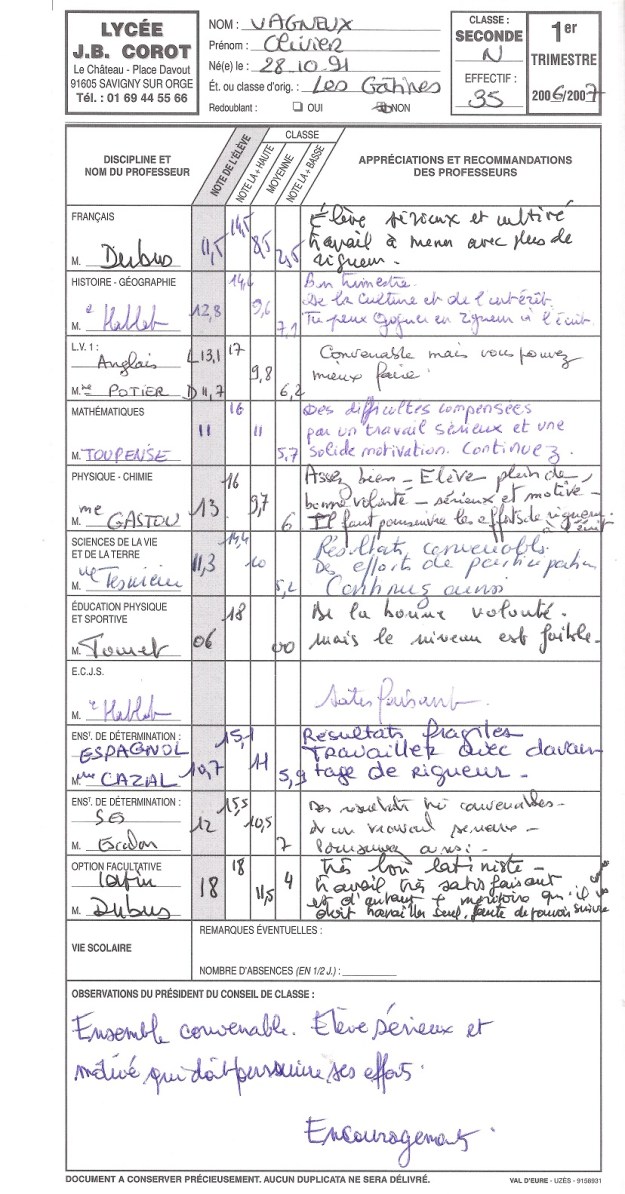 LYCÉE
J.B. COROT
Le Château - Place Davout
91605 SAVIGNY SUR ORGE
Tél. : 01 69 44 55 66
NOM : VAGNEUX
Prénom : Olivier
Né(e) le : 28.10.91
Ét. ou classe d'orig. : Les Gâtines
Redoublant : OUI NON
CLASSE :
SECONDE
N
EFFECTIF :
35
1er
TRIMESTRE
2006/2007
DISCIPLINE ET
NOM DU PROFESSEUR
NOTE DE L'ÉLÈVE
CLASSE
NOTE LA + HAUTE
MOYENNE
NOTE LA + BASSE
APPRÉCIATIONS ET RECOMMANDATIONS
DES PROFESSEURS
FRANÇAIS
M. Dubus
11,5 14,5 8,5 2,5
Élève sérieux et cultivé
travail à mener avec plus de
rigueur.
HISTOIRE - GÉOGRAPHIE
M.
12,8 14,6 9,6 7,1
Bon trimestre.
De la culture et de l'intérêt.
Tu peux gagner en rigueur à l'écrit.
L.V. 1 :
Anglais
M.me POTIER
L 13,1 17
D 11,7 9,8 6,2
Convenable mais vous pouvez
mieux faire.
MATHÉMATIQUES
M. TOUPENSE
11 16 11 5,7
Des difficultés compensées
par un travail sérieux et une
solide motivation. Continuez.
PHYSIQUE - CHIMIE
M. me GASTOU
13 16 9,7 6
Assez bien - Elève plein de
bonne volonté - sérieux et motivé -
Il faut poursuivre les efforts de rigueur
à l'écrit
SCIENCES DE LA VIE
ET DE LA TERRE
M.
11,3 14,4 10 5,2
Résultats convenables.
Des efforts de participation
Continuez ainsi
ÉDUCATION PHYSIQUE
ET SPORTIVE
M.
06 18 00
De la bonne volonté.
mais le niveau est faible.
E.C.J.S.
M.
Satisfaisant.
ENST. DE DÉTERMINATION :
ESPAGNOL
M.me CAZAL
10,7 15,1 11 5,9
Résultats fragiles
Travailler avec davan
tage de rigueur.
ENST. DE DÉTERMINATION :
SES
M. Escalon
12 15,5 10,5 7
Des résultats convenables -
d'un travail sérieux -
Poursuivez ainsi.
OPTION FACULTATIVE
latin
M. Dubus
18 18 11,5 4
Très bon latiniste -
travail très satisfaisant
et d'autant + méritoire qu'il
doit travailler seul, faute de pouvoir suivre
VIE SCOLAIRE
REMARQUES ÉVENTUELLES :
NOMBRE D'ABSENCES (EN 1/2 J.) :
OBSERVATIONS DU PRÉSIDENT DU CONSEIL DE CLASSE :
Ensemble convenable. Elève sérieux et
motivé qui doit poursuivre ses efforts.
Encouragements.
DOCUMENT A CONSERVER PRÉCIEUSEMENT. AUCUN DUPLICATA NE SERA DÉLIVRÉ.
VAL D'EURE - UZÈS - 9158931